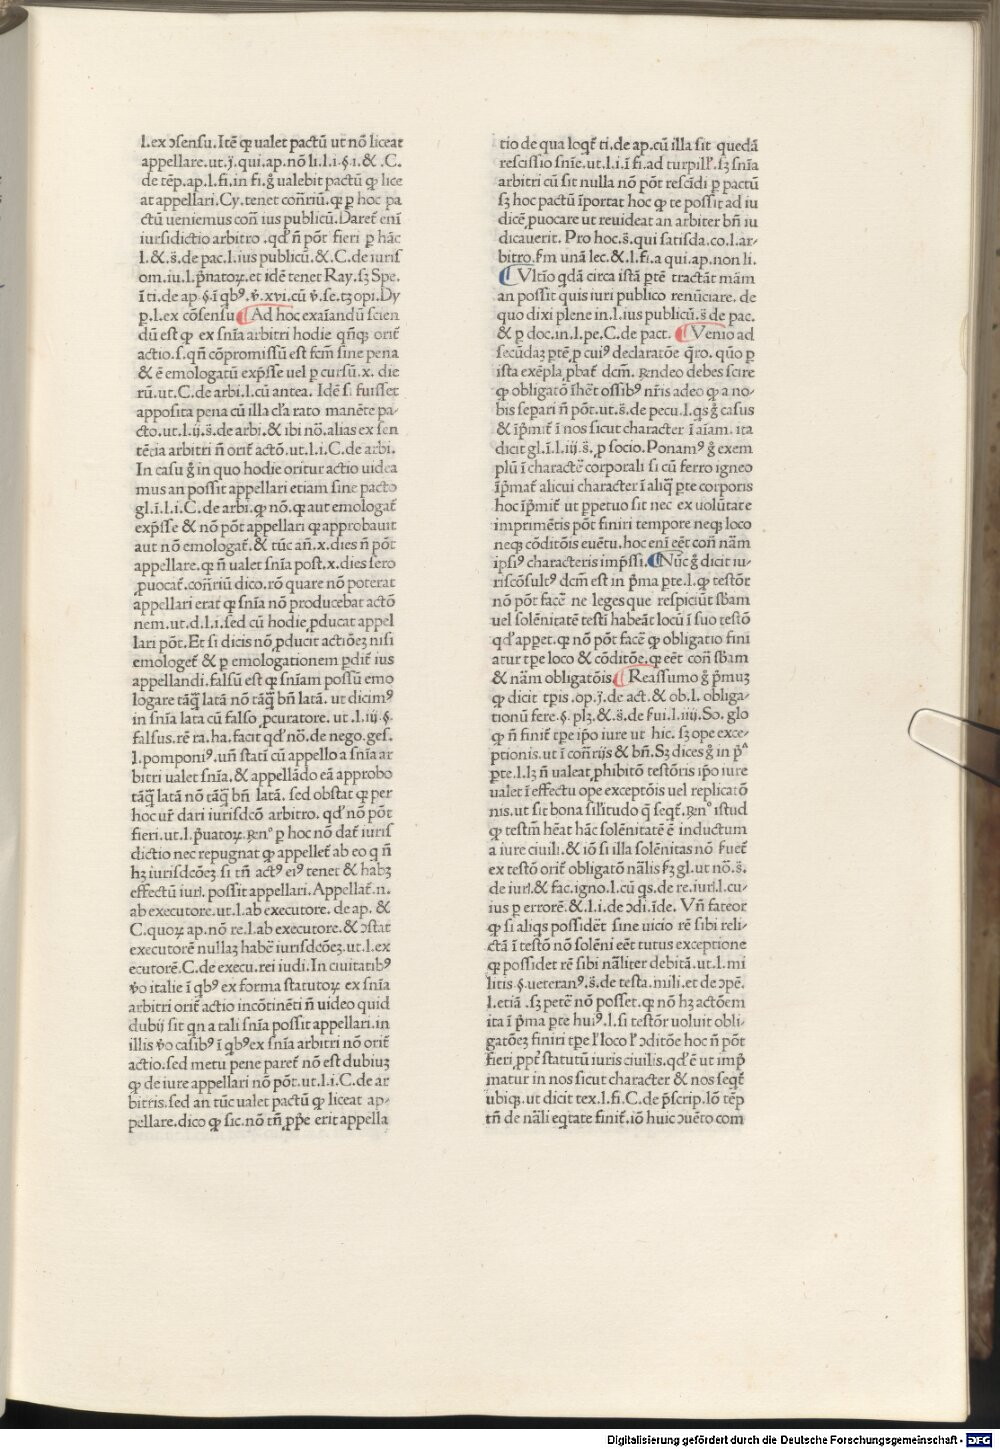 l.ex ɔſenſu.Itē ꝙ ualet pactū ut nō liceat
appellare.ut.j.qui.ap.nō li.l.i.§.i.& .C.
de tēp.ap.l.fi.in fi.g̊ ualebit pactū ꝙ lice
at appellari.Cy.tenet cōr̄iū.ꝙ ꝑ hoc pa
ctū ueniemus con̄ ius publicū.Daret̄ eni̅
iurſidictio arbitro .qd̓ n̄ pōt fieri ꝑ hāc
l.&.s̄.de pac.l.ius publicū.&.C.de iuriſ
om.iu.l.p̄natoꝝ.et idē tenet Ray.ſꝫ Spe.
ī ti.de ap.§.ī qb⁹.v̄.xvi.cū v̄.ſe.tꝫ opi.Dy
ꝑ.l.ex cōſenſu ¶Ad hoc exaīandū ſcien
dū eſt ꝙ ex ſnīa arbitri hodie qn̄qꝫ orit̄
actio.ſ.qn̄ cōpromiſſū eſt ſcm̄ ſine pena
& ē emologatū exp̄ſſe uel ꝑ curſū.x. die
rū.ut.C.de arbi.l.cū antea. Idē ſi fuiſſet
appoſita pena cū illa cl̓a rato manēte pa-
cto.ut.l.ij.s̄.de arbi.& ibi nō.alias ex ſen
tētia arbitri n̄ orit̄ actō.ut.l.i.C.de arbi.
In caſu g̊ in quo hodie oritur actio uidea
mus an poſſit appellari etiam ſine pacto
gl.ī.l.i.C.de arbi.ꝙ nō.ꝙ aut emologat̄
exp̄ſſe & nō pōt appellari ꝙ approbauit
aut nō emologat̄.& tūc an̄.x.dies n̄ pōt
appellare.ꝙ n̄ ualet ſnīa poſt.x.dies ſero
ꝓuocat̄.con̄riū dico.rō quare nō poterat
appellari erat ꝙ ſnīa nō producebat actō
nem.ut.d.l.i.ſed cū hodie ꝓducat appel
lari pōt.Et ſi dicis nō ꝓducit actiōeꝫ niſi
emologet̄ & ꝑ emologationem ꝑdit̄ ius
appellandi.falſū eſt ꝙ ſnīam poſſū emo
logare tāq̄ latā nō tāq̄ bn̄ latā. ut dicim⁹
in ſnīa lata cū falſo ꝓcuratore. ut .l.iij.§.
falſus.rē ra.ha.facit qd̓ nō.de nego.geſ.
l.pomponi⁹.un̄ ſtatī cū appello a ſnīa ar
bitri ualet ſnīa.& appellādo eā approbo
tāq̄ latā nō tāq̄ bn̄ latā. ſed obſtat ꝙ per
hoc ur̄ dari iuriſdcō arbitro. qd̓ nō pōt
fieri.ut.l.p̄uatoꝝ.ꝶn° ꝑ hoc nō dat̄ iuriſ
dictio nec repugnat ꝙ appellet̄ ab eo ꝙ n̄
hꝫ iuriſdcōeꝫ ſi tn̄ act⁹ ei⁹ tenet & habꝫ
effectū iuri. poſſit appellari. Appellat̄.n.
ab executore.ut.l.ab executore. de ap. &
C.quoꝝ ap.nō re.l.ab executore.& ɔſtat
executorē nullaꝫ habē iuriſdcōeꝫ.ut.l.ex
ecutorē.C.de execu.rei iudi.In ciuitatib⁹
v̊o italie ī qb⁹ ex forma ſtatutoꝝ ex ſnīa
arbitri orit̄ actio incōtinēti n̄ uideo quid
dubij ſit qn a tali ſnīa poſſit appellari.in
illis v̊o caſib⁹ ī qb⁹ex ſnīa arbitri nō orit̄
actio.ſed metu pene paret̄ nō eſt dubiuꝫ
ꝙ de iure appellari nō pōt.ut.l.i.C.de ar
bitris.ſed an tūc ualet pactū ꝙ liceat ap-
pellare.dico ꝙ ſic.nō tn̄ ꝓpe erit appella
tio de qua loqt̄ ti.de ap.cū illa ſit quedā
reſciſſio ſnīe.ut.l.i.ī fi.ad turpill̓.ſꝫ ſnīa
arbitri cū ſit nulla nō pōt reſcīdi ꝑ pactū
ſꝫ hoc pactū īportat hoc ꝙ te poſſit ad iu
dicē ꝓuocare ut reuideat an arbiter bn̄ iu
dicauerit. Pro hoc.s̄.qui ſatiſda.co.l.ar-
bitro.ẜm unā lec.&.l.fi.a qui.ap.non li.
¶Vltīo qdā circa iſtā ꝑtē tractāt mām
an poſſit quis iuri publico renūciare. de
quo dixi plene in.l.ius publicū.s̄ de pac.
& ꝑ doc.in.l.pe.C.de pact. ¶Venio ad
ſecūdaꝫ ꝑtē ꝑ cui⁹ declaratōe q̄ro. quō ꝑ
iſta exēpla ꝓbat̄ dcm̄. ꝶndeo debes ſcire
ꝙ obligatō īhēt oſſib⁹ nr̄is adeo ꝙ a no-
bis ſepari n̄ pōt.ut.s̄.de pecu.l.qs g̊ caſus
& īp̄mit̄ ī nos ſicut character ī aīam. ita
dicit gl.ī.l.iij.s̄. ꝓ ſocio.Ponam⁹ g̊ exem
plū ī charactē corporali ſi cū ferro igneo
īp̄mat̄ alicui character ī aliq̄ ꝑte corporis
hoc īp̄mit̄ ut ꝑpetuo ſit nec ex uolūtate
imprimētis pōt finiri tempore neqꝫ loco
neqꝫ cōditōis euētu.hoc eni̅ eēt con̄ nām
ipſi⁹ characteris imp̄ſſi.¶Nūc g̊ dicit iu-
riſcōſult⁹ dcm̄ eſt in p̄ma ꝑte.l.ꝙ teſtōr
nō pōt facē ne leges que reſpiciūt ſbam
uel ſolēnitatē teſtī habeāt locū ī ſuo teſtō
qd̓ appet.ꝙ nō pōt facē ꝙ obligatio fini
atur tꝑe loco & cōditōe.ꝙ eēt con̄ ſbam
& nām obligatōis ¶Reaſſumo g̊ p̄muꝫ
ꝙ dicit tꝑis .op.j.de act.& ob.l. obliga-
tionū fere.§. plꝫ.&.s̄.de fui.l.iiij.So. glo
ꝙ n̄ finit̄ tꝑe ip̄o iure ut hic. ſꝫ ope exce-
ptionis.ut ī con̄rijs & bn̄. Sꝫ dices g̊ in p̄ᵃ
ꝑte.l.lꝫ n̄ ualeat ꝓhibitō teſtōris ip̄o iure
ualet ī effectu ope exceptōis uel replicatō
nis.ut ſit bona ſil̓itudo q̄ ſeqt̄.ꝶn° iſtud
ꝙ teſtm̄ hēat hāc ſolēnitatē ē inductum
a iure ciuili.& iō ſi illa ſolēnitas nō fuet̄
ex teſtō orit̄ obligatō nālis ẜꝫ gl.ut nō.s̄.
de iurl.& fac.igno.l.cū qs.de re.iurl.l.cu-
ius ꝑ errorē.&.l.i.de ɔdi.īde. Vn̄ fateor
ꝙ ſi aliqs poſſidēt ſine uicio rē ſibi reli-
ctā ī teſtō nō ſolēni eēt tutus exceptione
ꝙ poſſidet rē ſibi nāliter debitā.ut.l.mi
litis §.ueteran⁹.s̄.de teſta.mili.et de ɔpē.
l.etiā .ſꝫ petē nō poſſet.ꝙ nō hꝫ actōem
ita ī p̄ma ꝑte hui⁹.l.ſi teſtōr uoluit obli-
gatōeꝫ finiri tꝑe l̓ loco l̓ ɔditōe hoc n̄ pōt
fieri ꝓpt̄ ſtatutū iuris ciuilis.qd̓ ē ut imp̄
matur in nos ſicut character & nos ſeqt̄
ubiqꝫ.ut dicit tex.l.fi.C.de p̄ſcrip.lō tēp
tn̄ de nāli eqtate finit̄.iō huic ɔuēto com
Digitalisierung gefördert durch die Deutsche Forschungsgemeinschaft - DFG